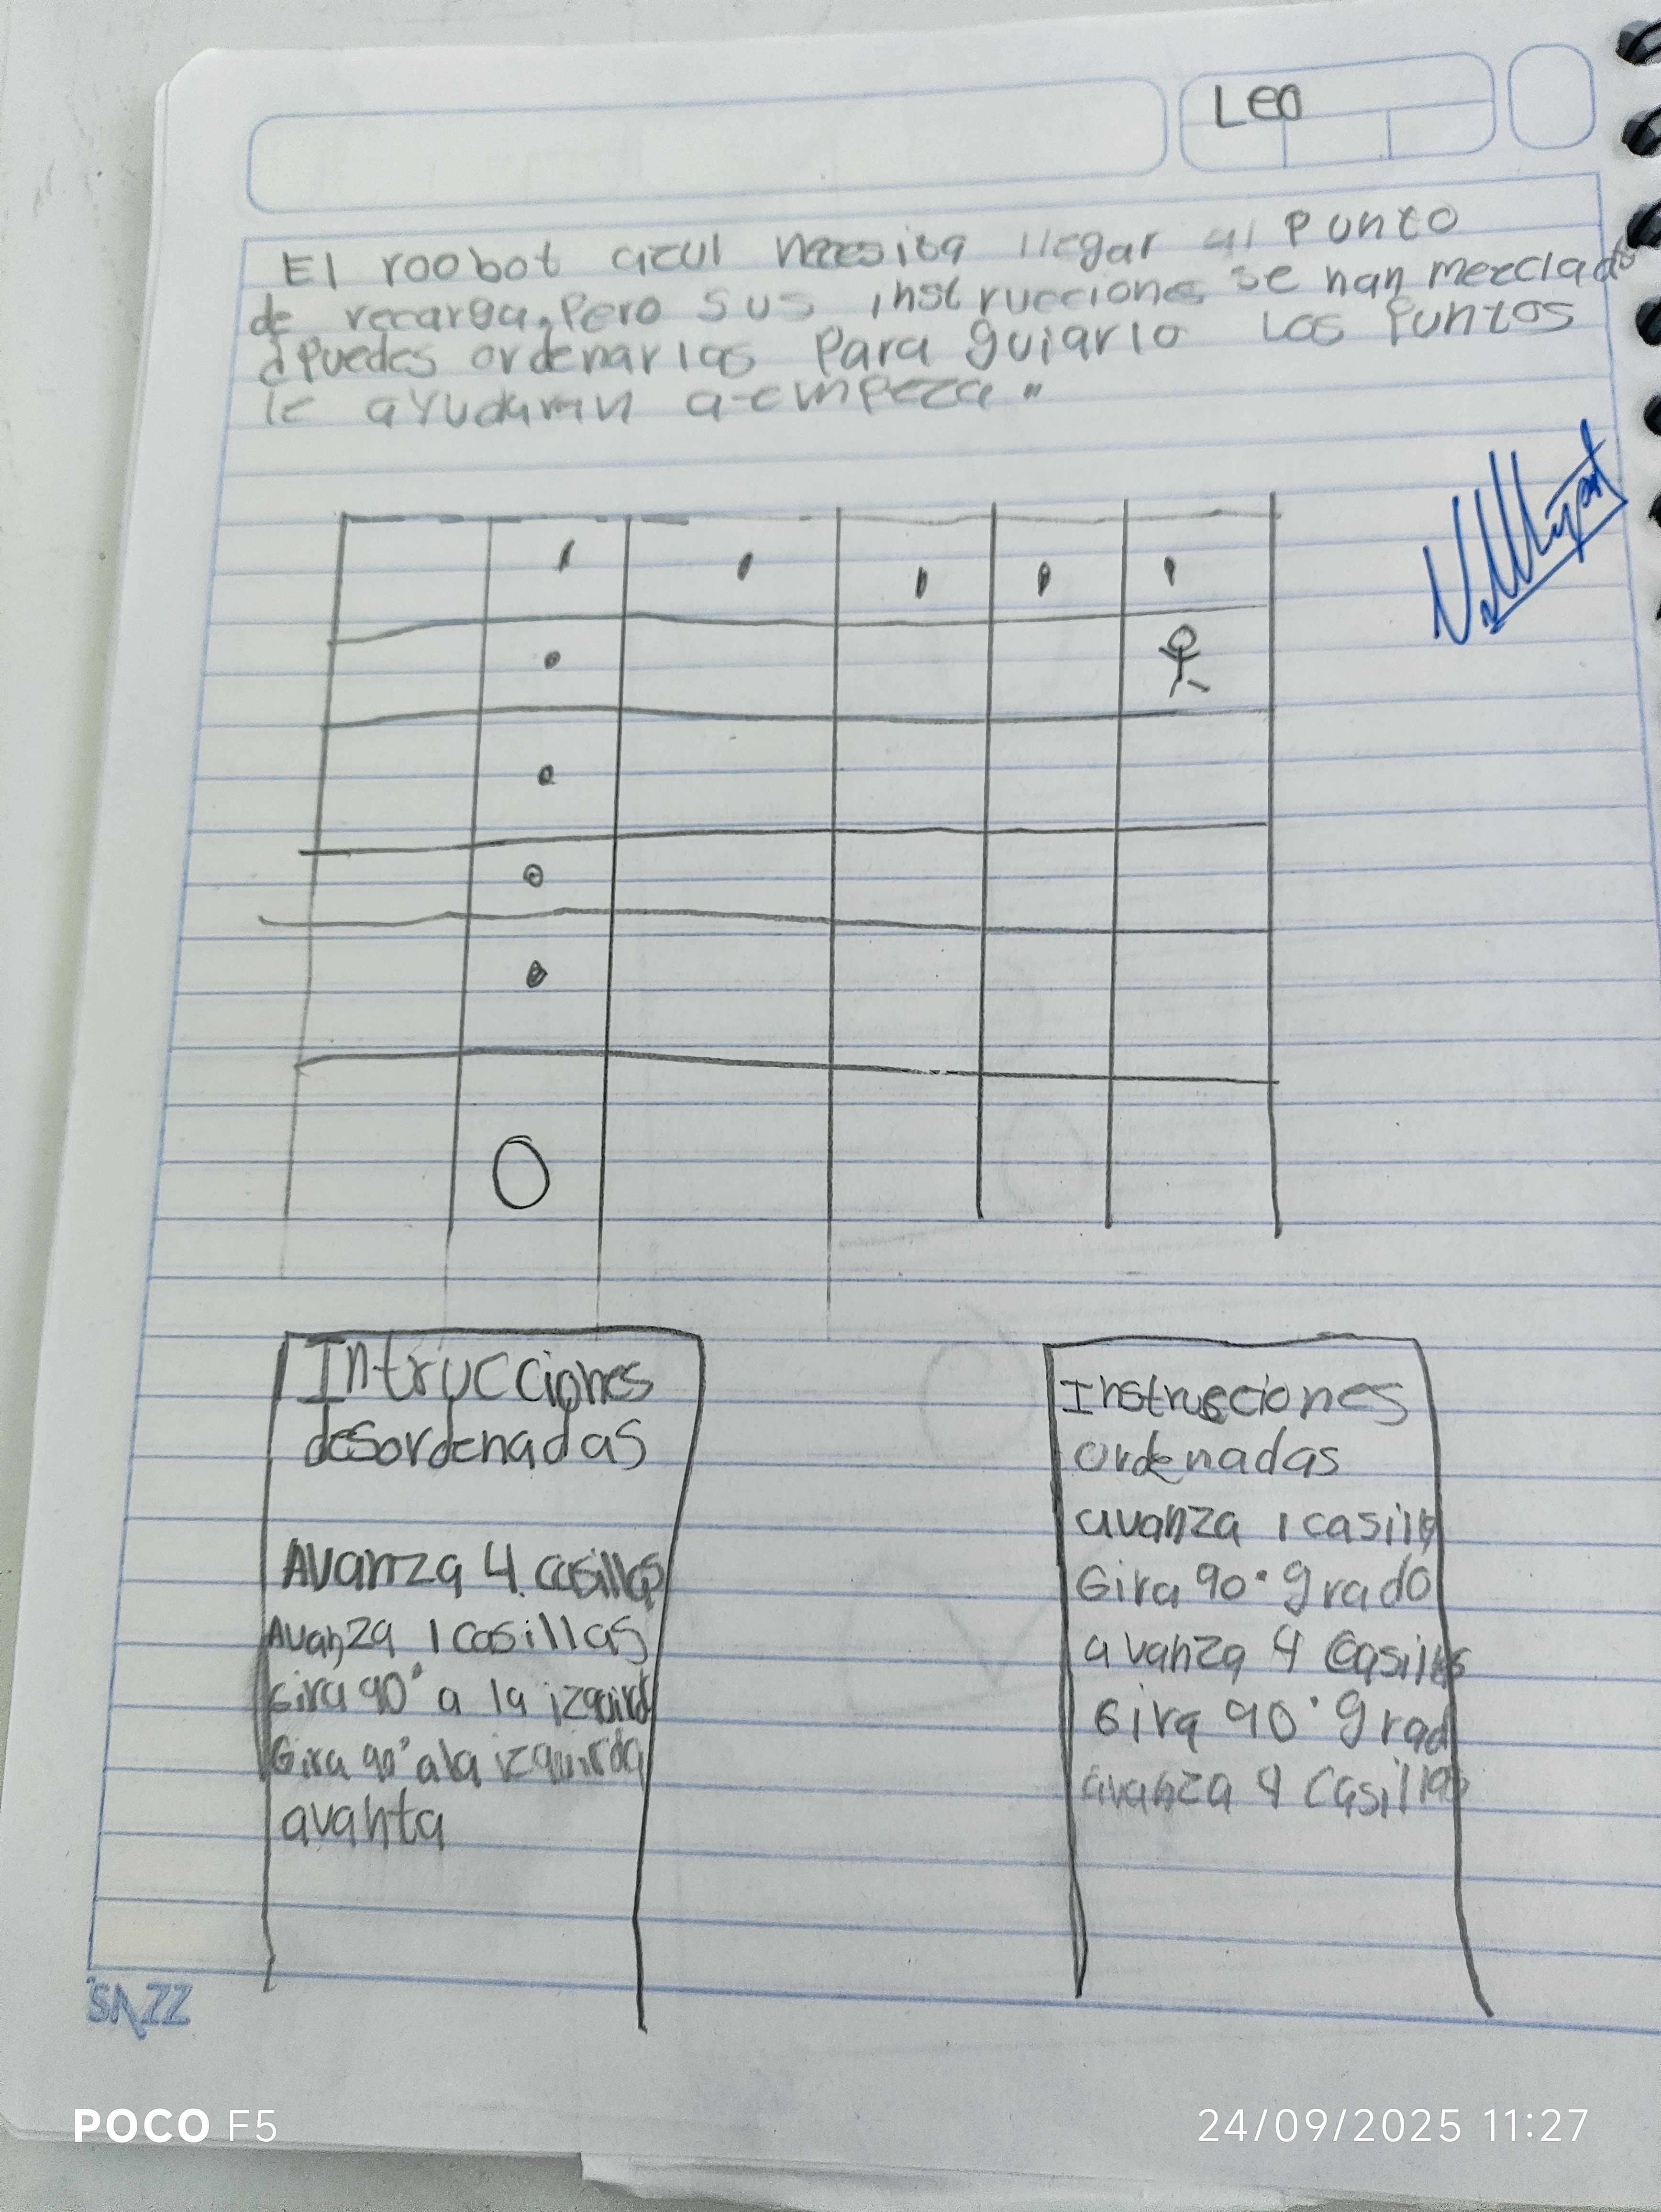 Leo
El roobot azul necesita llegar al punto
de recarga, Pero sus instrucciones se han mezclado
¿Puedes ordenarlas Para guiarlo Los Puntos
le ayudaran a empeza"
Intrucciones
desordenadas
Avanza 4 casillas
Avanza 1 casillas
Gira 90° a la izquird
Gira 90° a la izquirda
avanta
Instrucciones
ordenadas
avanza 1 casilla
Gira 90° grado
avanza 4 casillas
Gira 90° grad
avanza 4 Casillas
SAZZ
POCO F5
24/09/2025 11:27